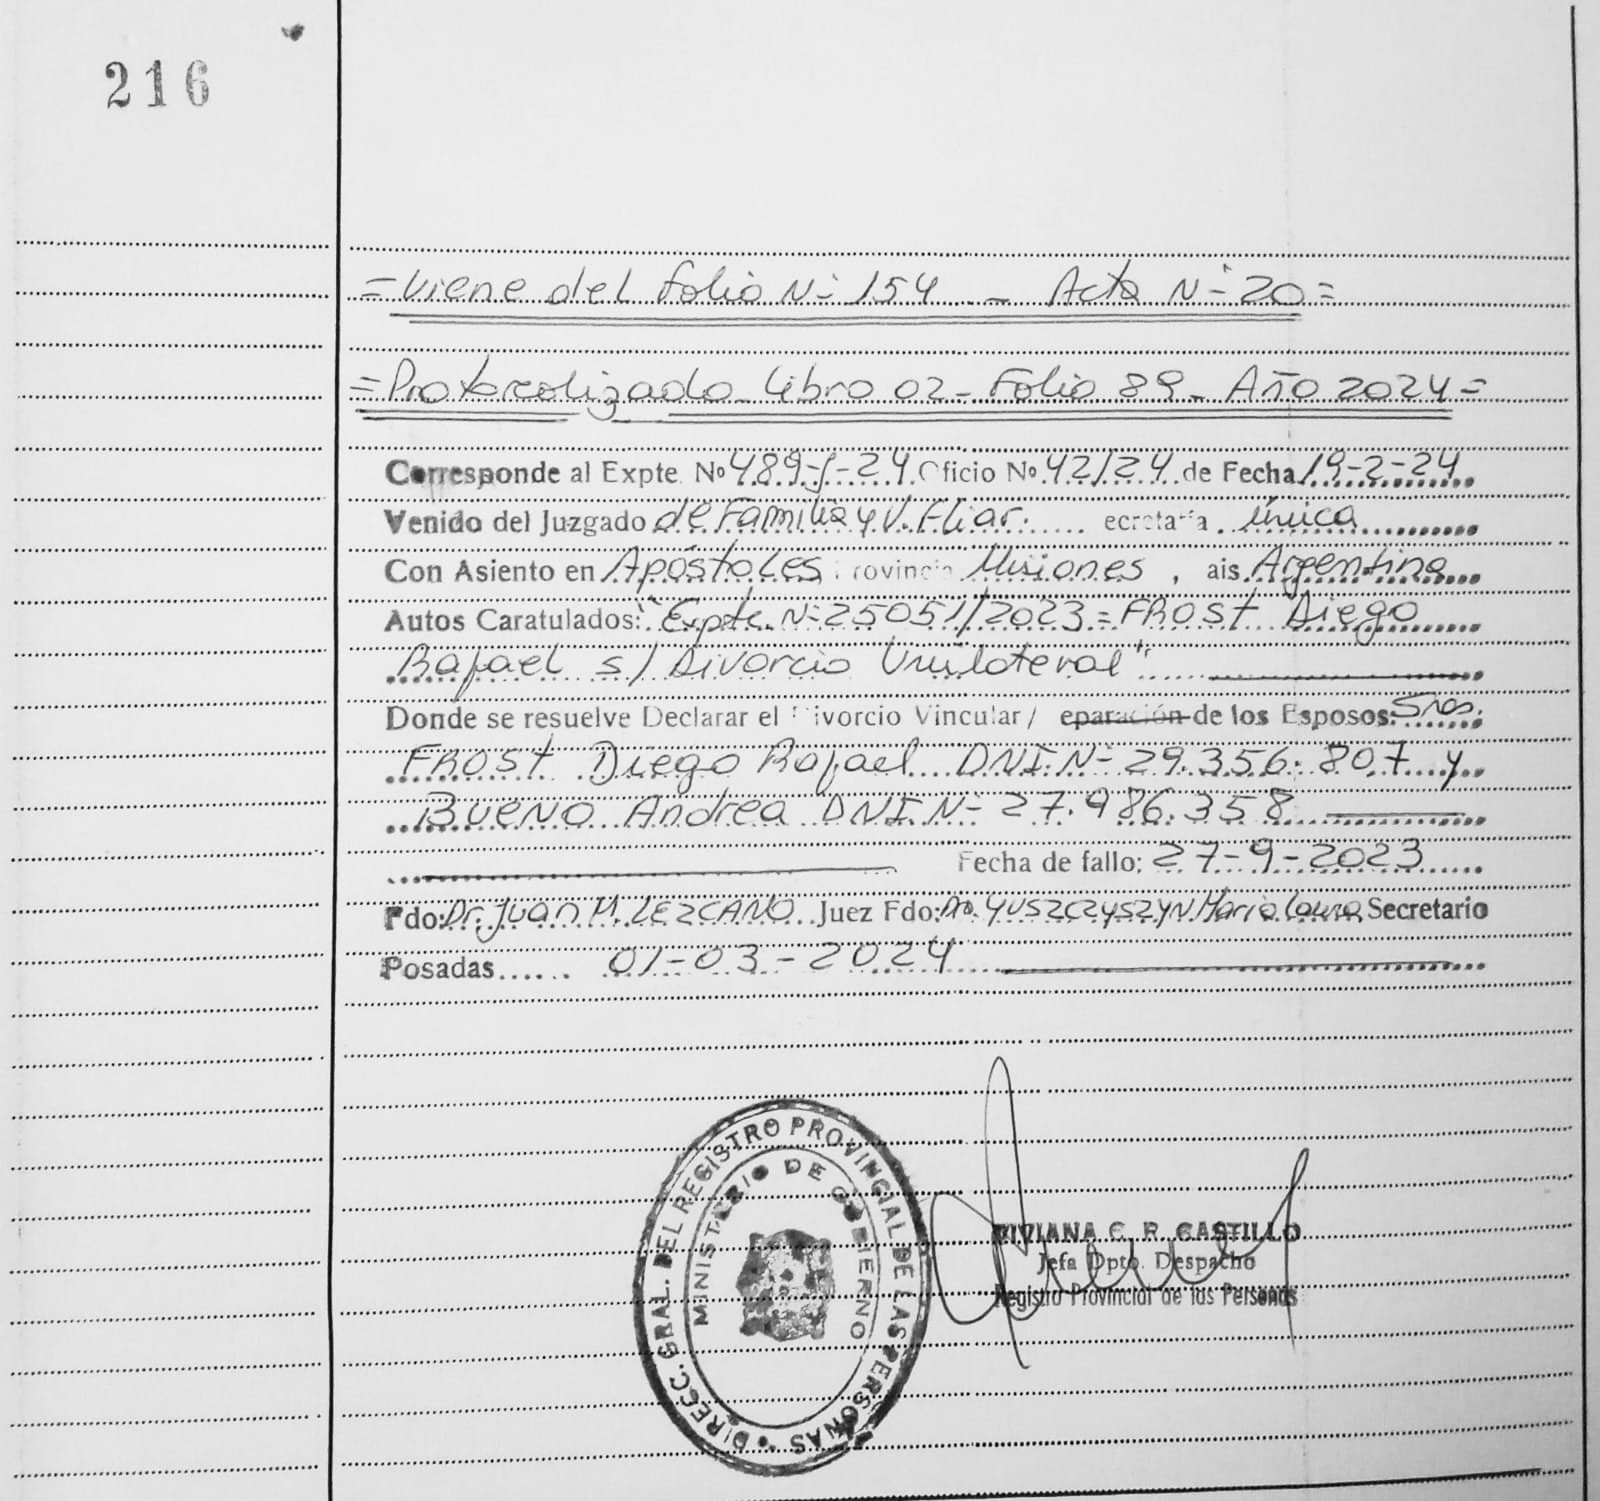 216
=Viene del folio Nº 154 - Acta Nº 20=
=Protocolizado Libro 02 - Folio 89 - Año 2024=
Corresponde al Expte. Nº 489-J-24 Oficio Nº 42/24 de Fecha 19-2-24
Venido del Juzgado de Familia y V. Fliar. ecretaría única
Con Asiento en Apóstoles Provincia Misiones, ais Argentina
Autos Caratulados: "Expte. Nº 25051/2023 = FROST Diego
Rafael s/ Divorcio Unilateral"
Donde se resuelve Declarar el Divorcio Vincular/ eparación de los Esposos: Sres.
FROST Diego Rafael DNI Nº 29.356.807 y
BUENO Andrea DNI Nº 27.986.358
Fecha de fallo: 27-9-2023
Fdo: Dr. Juan M. LEZCANO Juez Fdo: Dra. YUSZCZYSZYN Maria Laura Secretario
Posadas...... 01-03-2024
DIRECC. GRAL. DEL REGISTRO PROVINCIAL DE LAS PERSONAS
MINISTERIO DE GOBIERNO
VIVIANA C. R. CASTILLO
Jefa Dpto. Despacho
Registro Provincial de las Personas